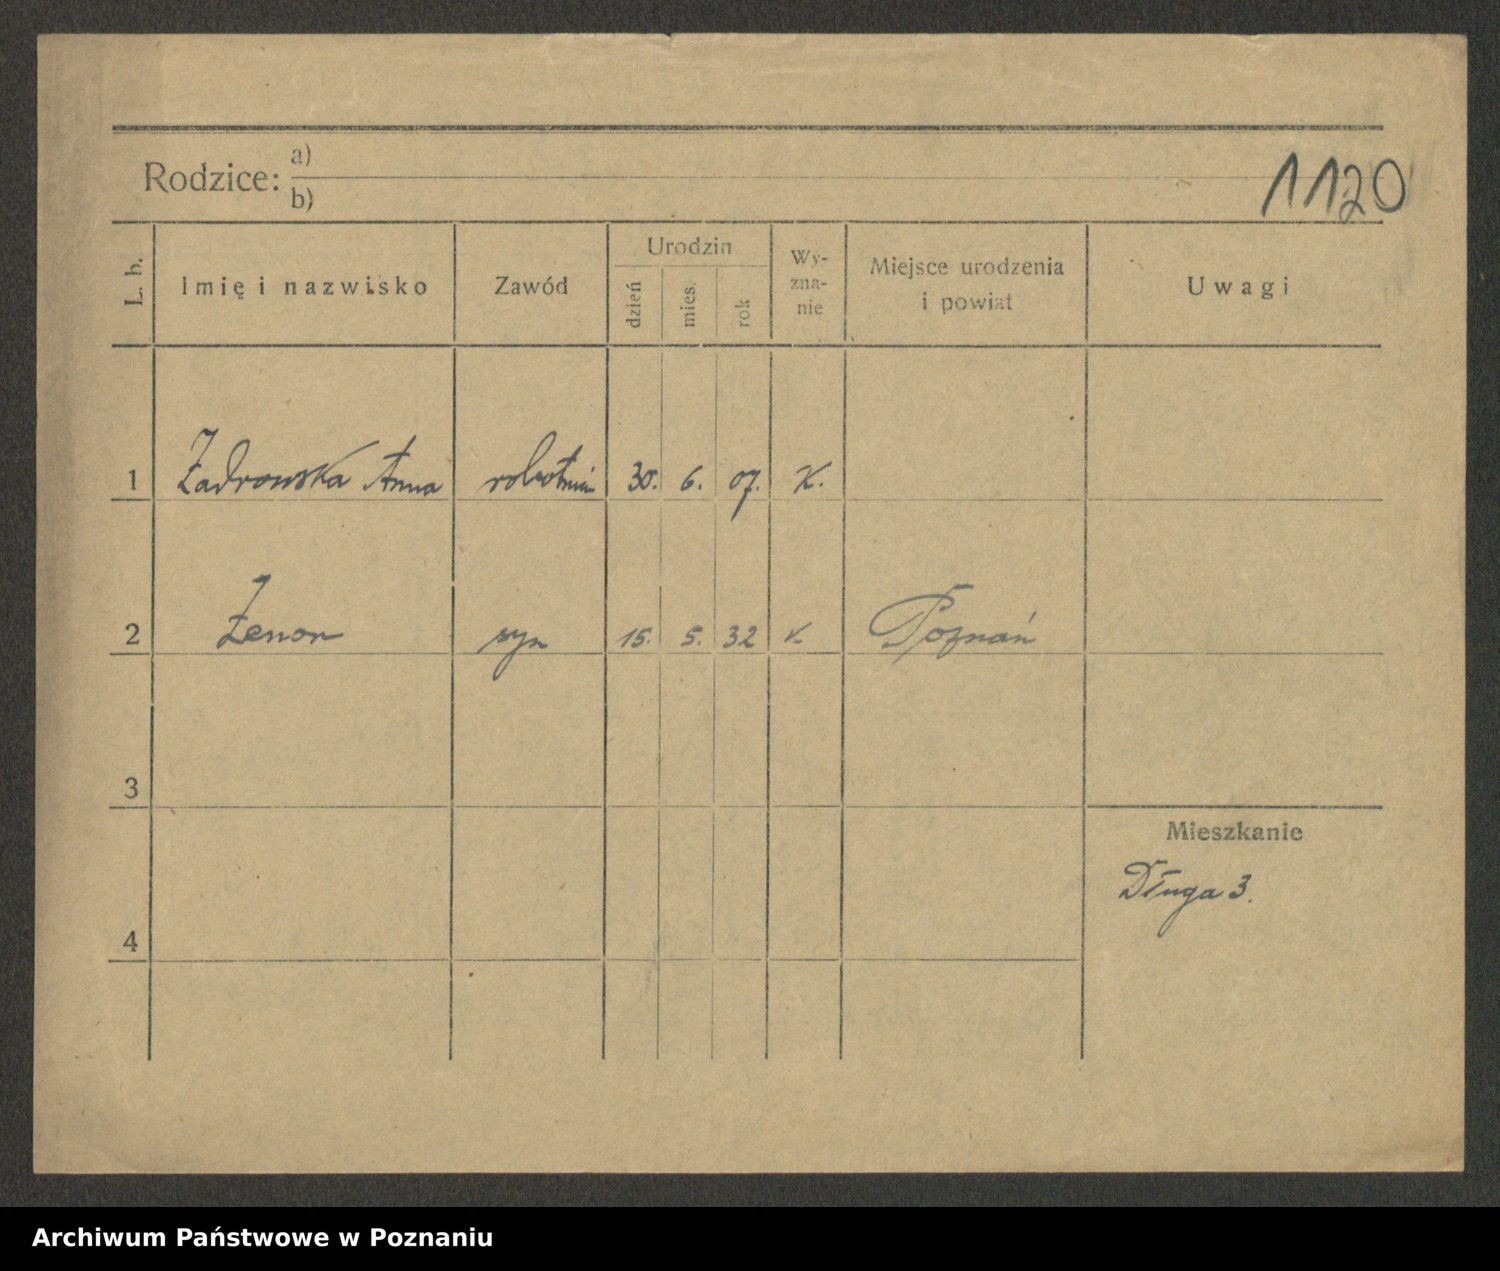 Rodzice: a)
b)
1120
L. b.
Imię i nazwisko
Zawód
Urodzin
dzień
mies.
rok
Wy-
zna-
nie
Miejsce urodzenia
i powiat
Uwagi
1 Zadrowska Anna 30. 6. 07. K.
2 Zenon syn 15. 5. 32 k. Poznań
3
Mieszkanie
Długa 3.
4
Archiwum Państwowe w Poznaniu